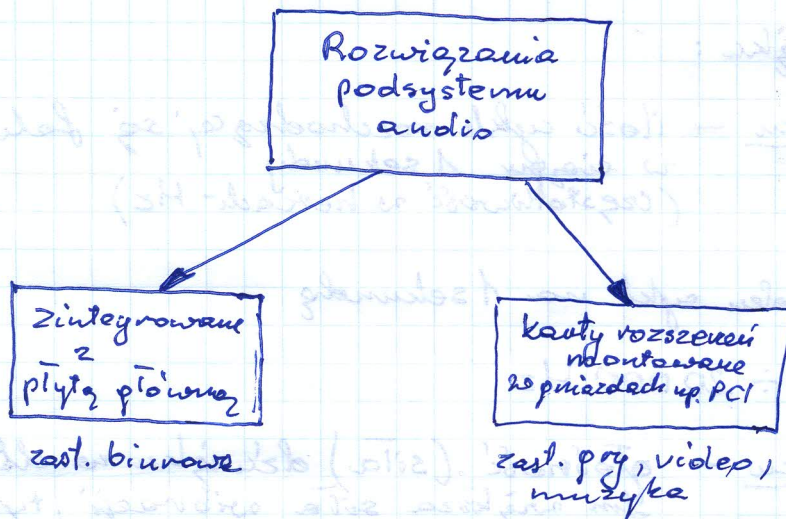 Rozwiązania
podsystemu
audio
zintegrowane
z
płytą główną
zast. biurowe
karty rozszerzeń
montowane
w gniazdach np. PCI
zast. gry, video,
muzyka